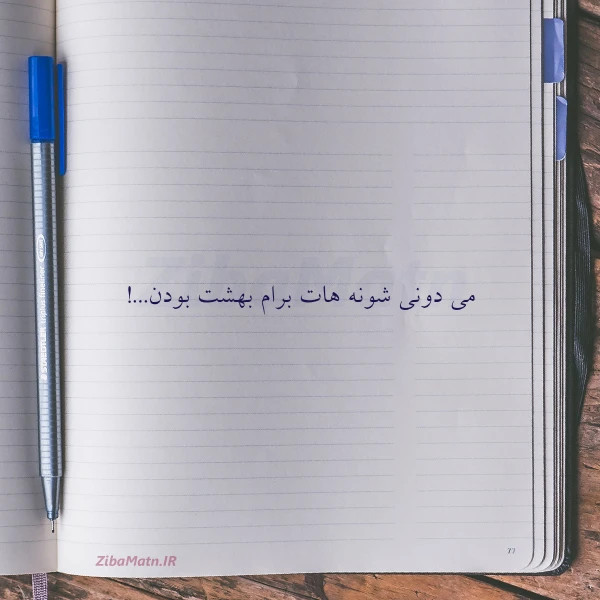 می دونی شونه هات برام بهشت بودن...!
ZibaMatn.IR
77